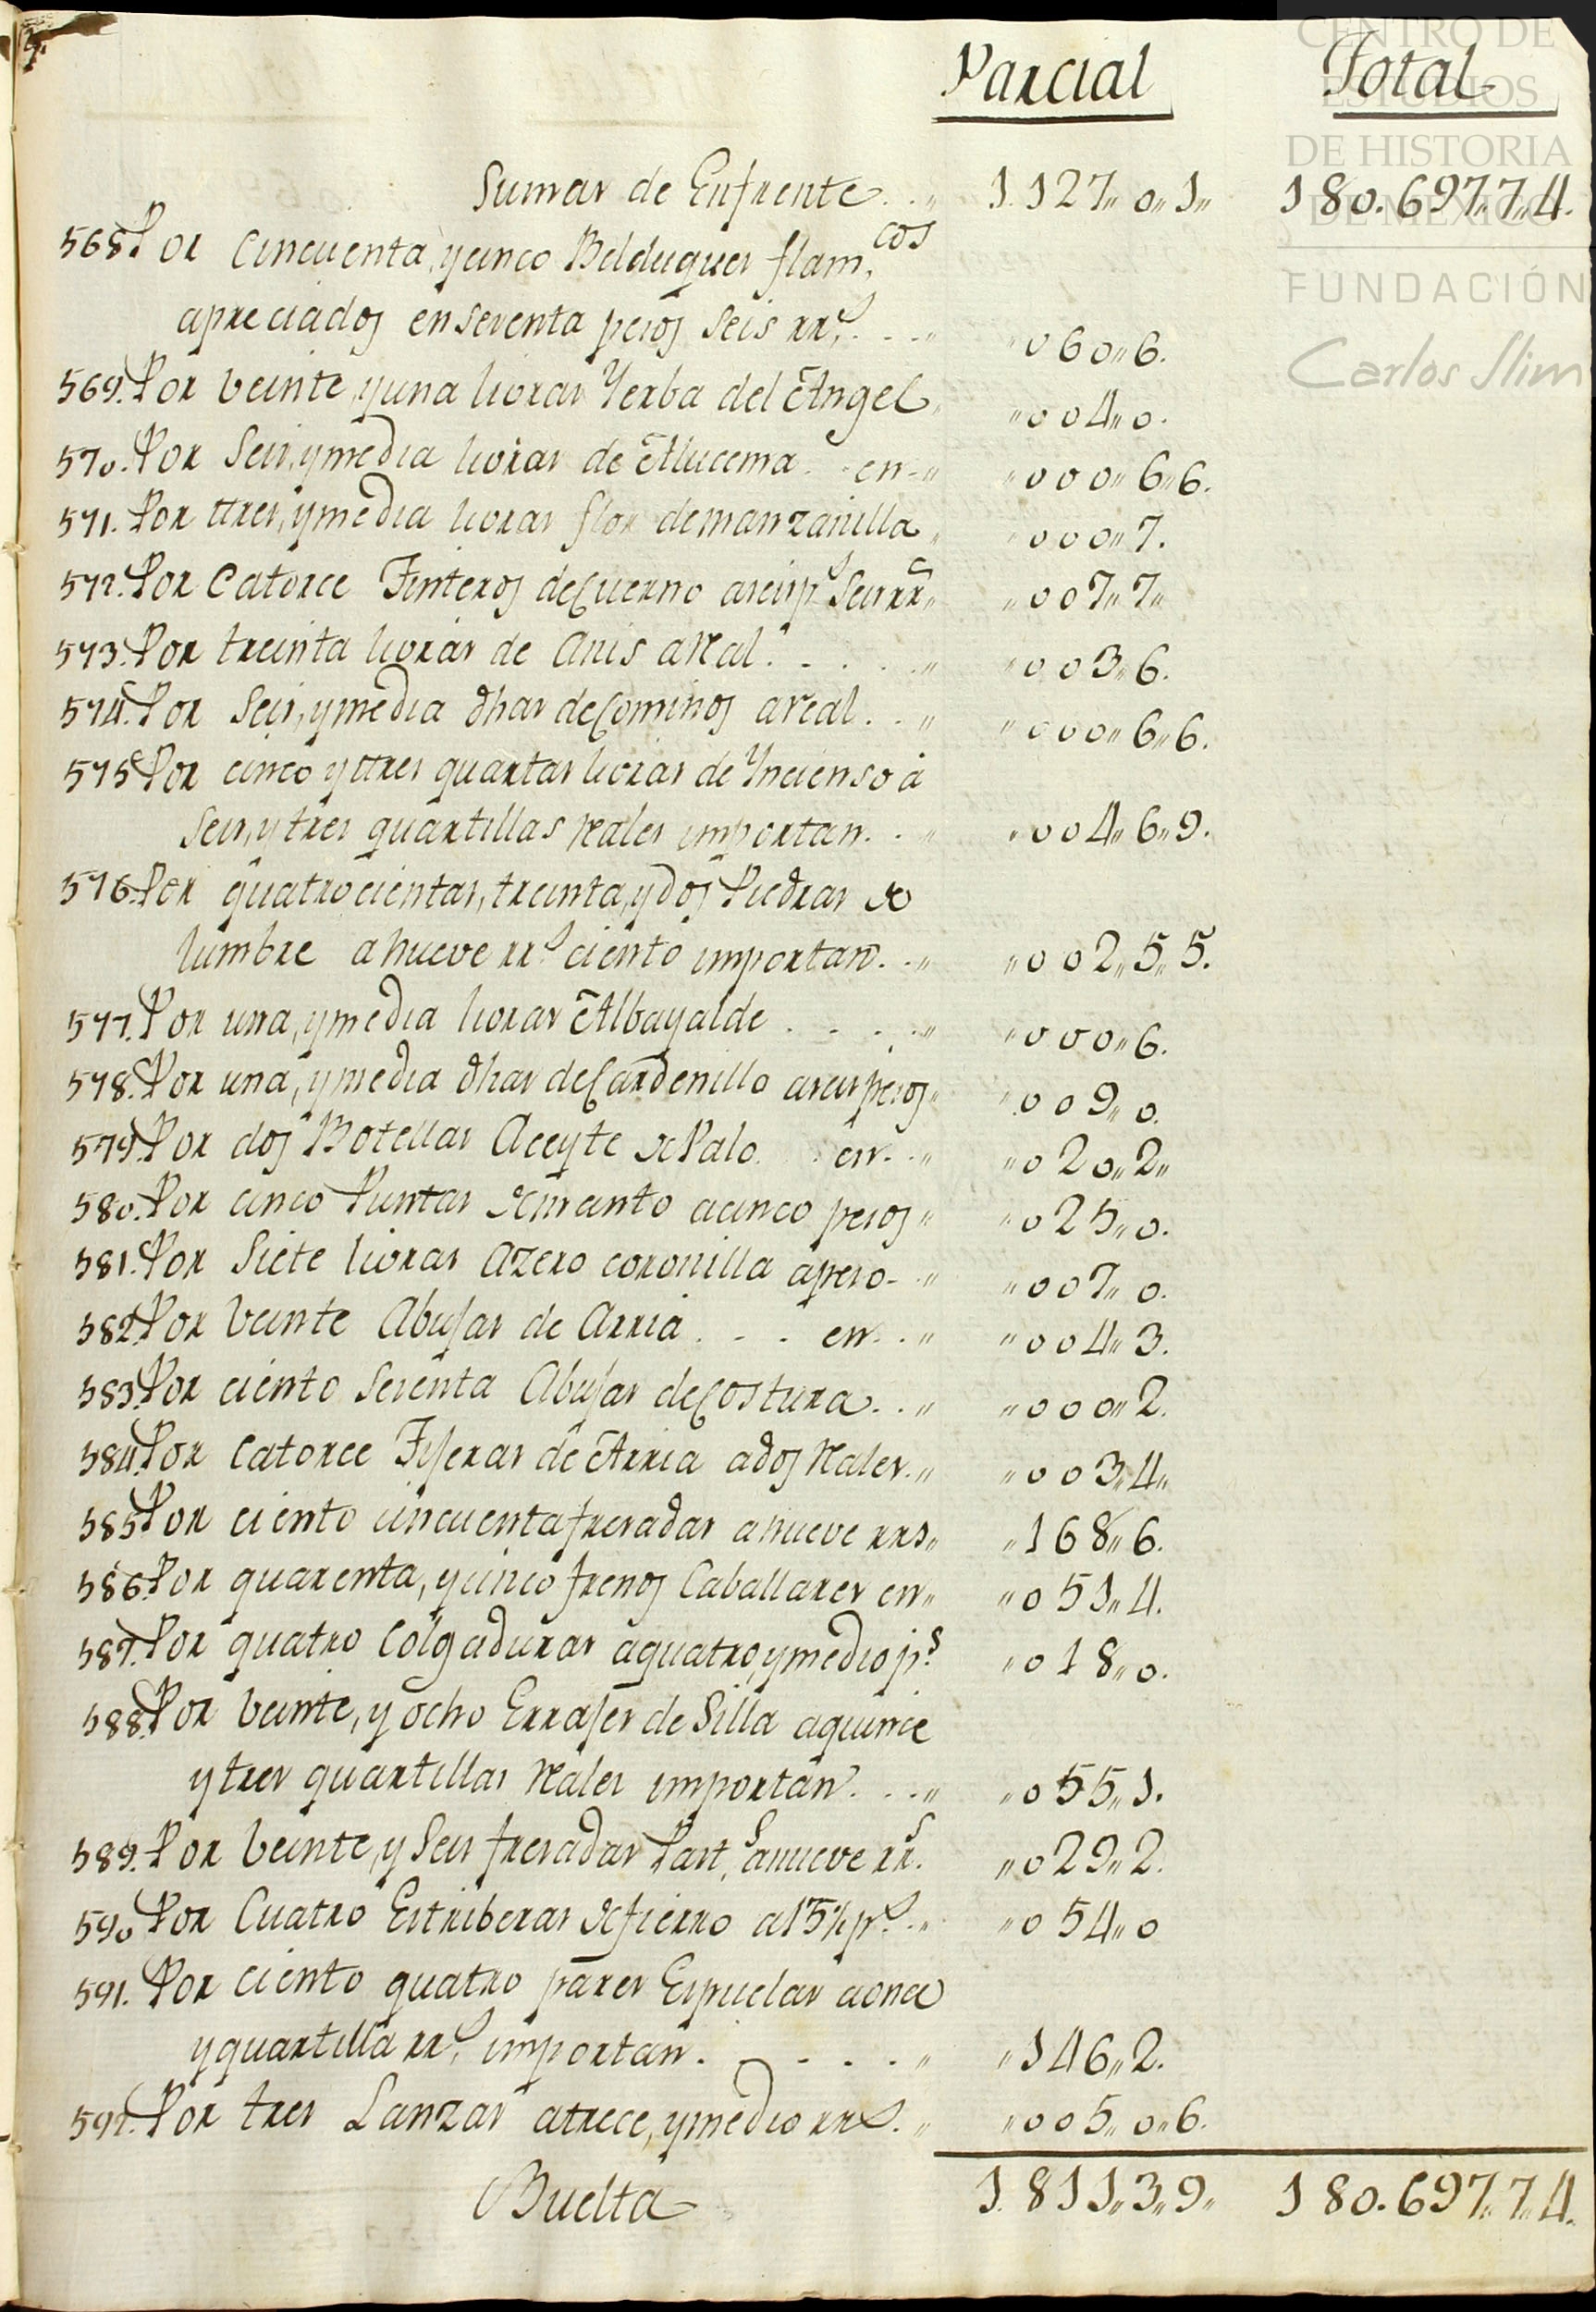 CENTRO DE
ESTUDIOS
DE HISTORIA
DE MEXICO
FUNDACIÓN
Carlos Slim
Parcial Total
Sumas de Enfrente. . „ 1.127„ 0„ 1„ 180.697„7„4.
568. Por Cincuenta, y cinco Belduques flam.cos
apreciados en sesenta pesos seis rr.s . . . „ „060„6.
569. Por veinte, y una livras Yerba del Angel „ „004„0.
570. Por seis, y media livras de Alucema . . en . „ „000„6„6.
571. Por ttres, y media livras flor de manzanilla „ „000„7.
572. Por Catorce Tinteros de Cuerno aseis p.s seis rr.s „ „007„7„
573. Por treinta livras de Anis a Real . . . . . „ „003„6.
574. Por seis, y media dhas de Cominos a real . . „ „000„6„6.
575. Por cinco y ttres quartas livras de Yncienso à
seis, y tres quartillas Reales importan. . „ „004„6„9.
576. Por quatrocientas, treinta, y dos Piedras de
lumbre a nueve rr.s ciento importan. . „ „002„5„5.
577. Por una, y media livras Albayalde . . . . „ „000„6.
578. Por una, y media dhas de Cardenillo aseis pesos „ „009„0.
579. Por dos Botellas Aceyte de Palo . . en . . „ „020„2„
580. Por cinco Puntas de manto acinco pesos „ „025„0.
581. Por Siete livras Azero coronilla apeso . „ „007„0.
582. Por veinte Abujas de Arria . . . en . . „ „004„3.
583. Por ciento sesenta Abujas de Costura. . „ „000„2.
584. Por Catorce Tijeras de Arria a dos Reales. „ „003„4„
585. Por ciento cincuenta fresadas a nueve rrs. „ „168„6.
586. Por quarenta, y cinco frenos Caballares en „ „051„4.
587. Por quatro Colgaduras aquatro, y medio p.s „018„0.
588. Por veinte, y ocho Errajes de Silla aquince
y tres quartillas Reales importan . . . „ „055„1.
589. Por veinte, y seis fresadas Past.s anueve rr.s „029„2.
590. Por Cuatro Estriberas de fierro a 13½ p.s . „ „054„0
591. Por ciento quatro pares Espuelas aonce
y quartilla rr.s importan . . . . . „ „146„2.
592. Por tres Lanzas atrece, y medio rrs. „ „005„0„6.
Buelta 1.811„3„9„ 180.697„7„4.